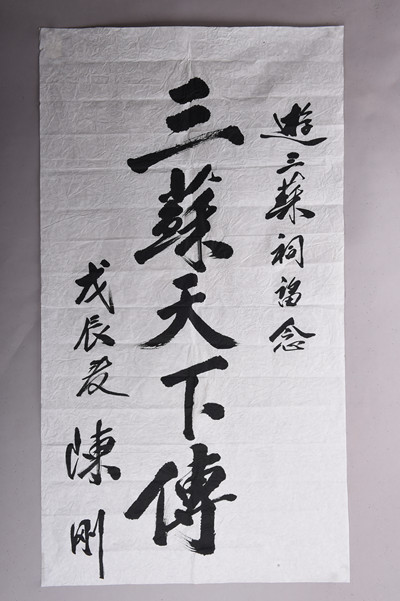 遊三蘇祠留念
三蘇天下傳
戊辰夏
陳剛